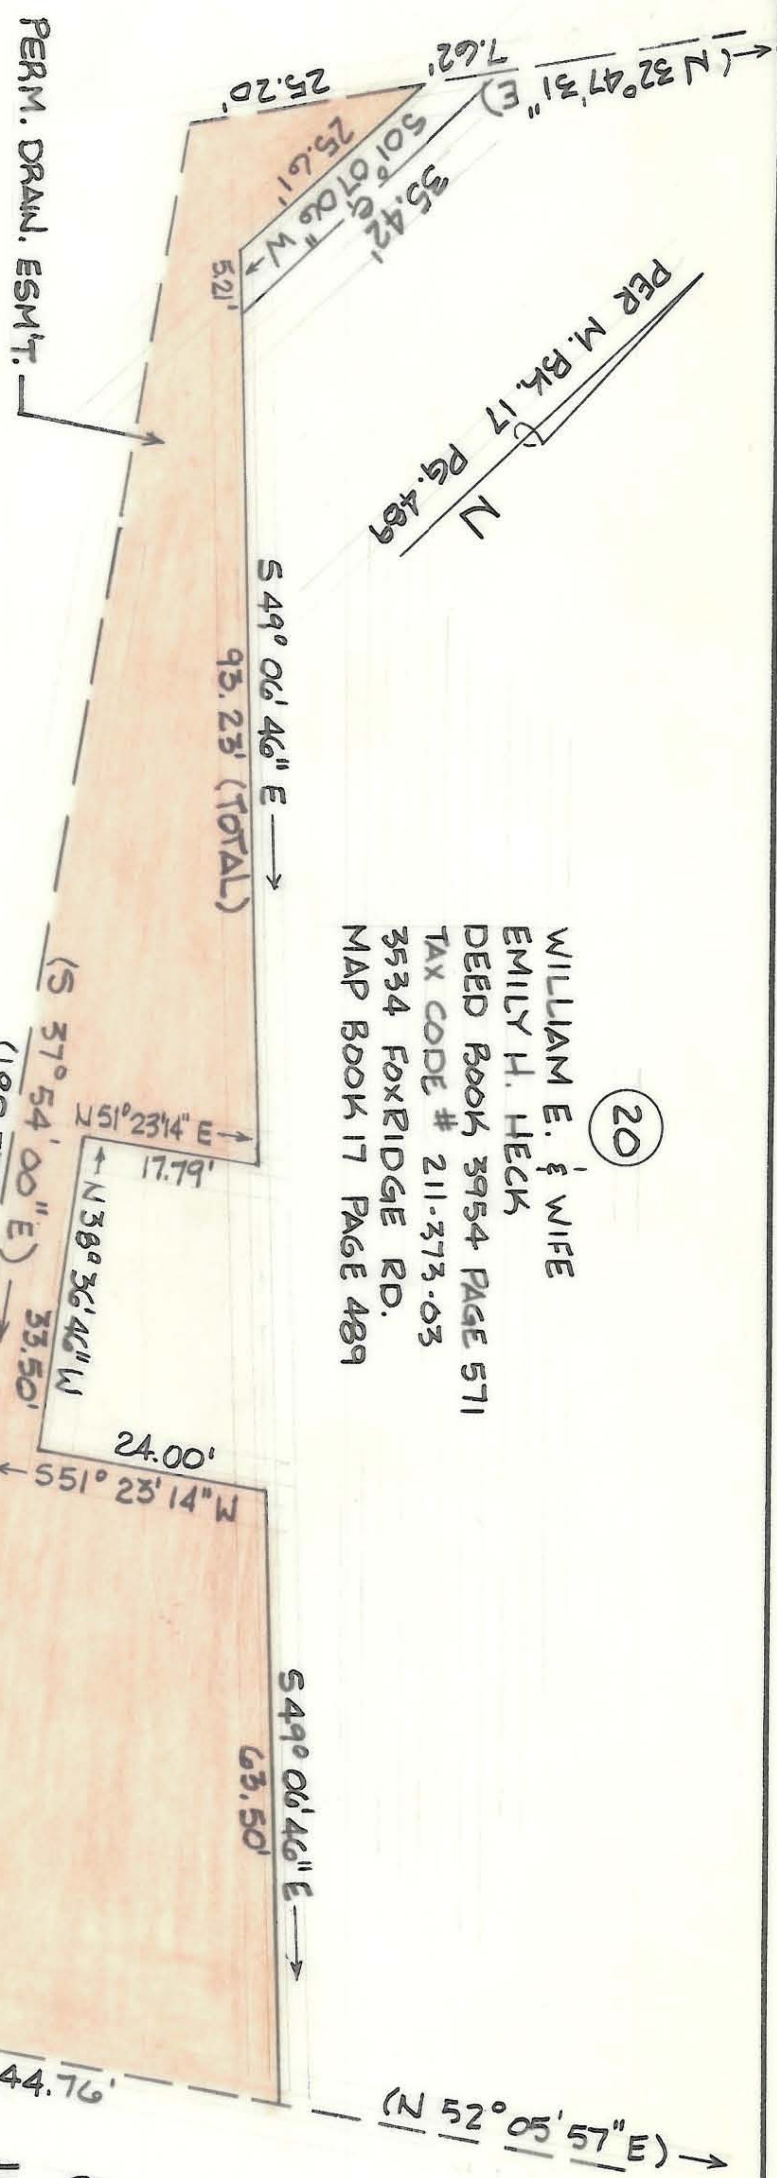 (N 32° 47' 31" E)
7.62'
25.20'
25.61'
S 01° 07' 06" W
35.42'
5.21'
PERM. DRAIN. ESM'T.
PER M. BK. 17 PG. 489
N
S 49° 06' 46" E
93.23' (TOTAL)
20
WILLIAM E. & WIFE
EMILY H. HECK
DEED BOOK 3954 PAGE 571
TAX CODE # 211-373-03
3534 FOXRIDGE RD.
MAP BOOK 17 PAGE 489
N 51° 23' 14" E
17.79'
N 38° 36' 46" W
33.50'
(S 37° 54' 00" E)
24.00'
S 51° 23' 14" W
S 49° 06' 46" E
63.50'
44.76'
(N 52° 05' 57" E)